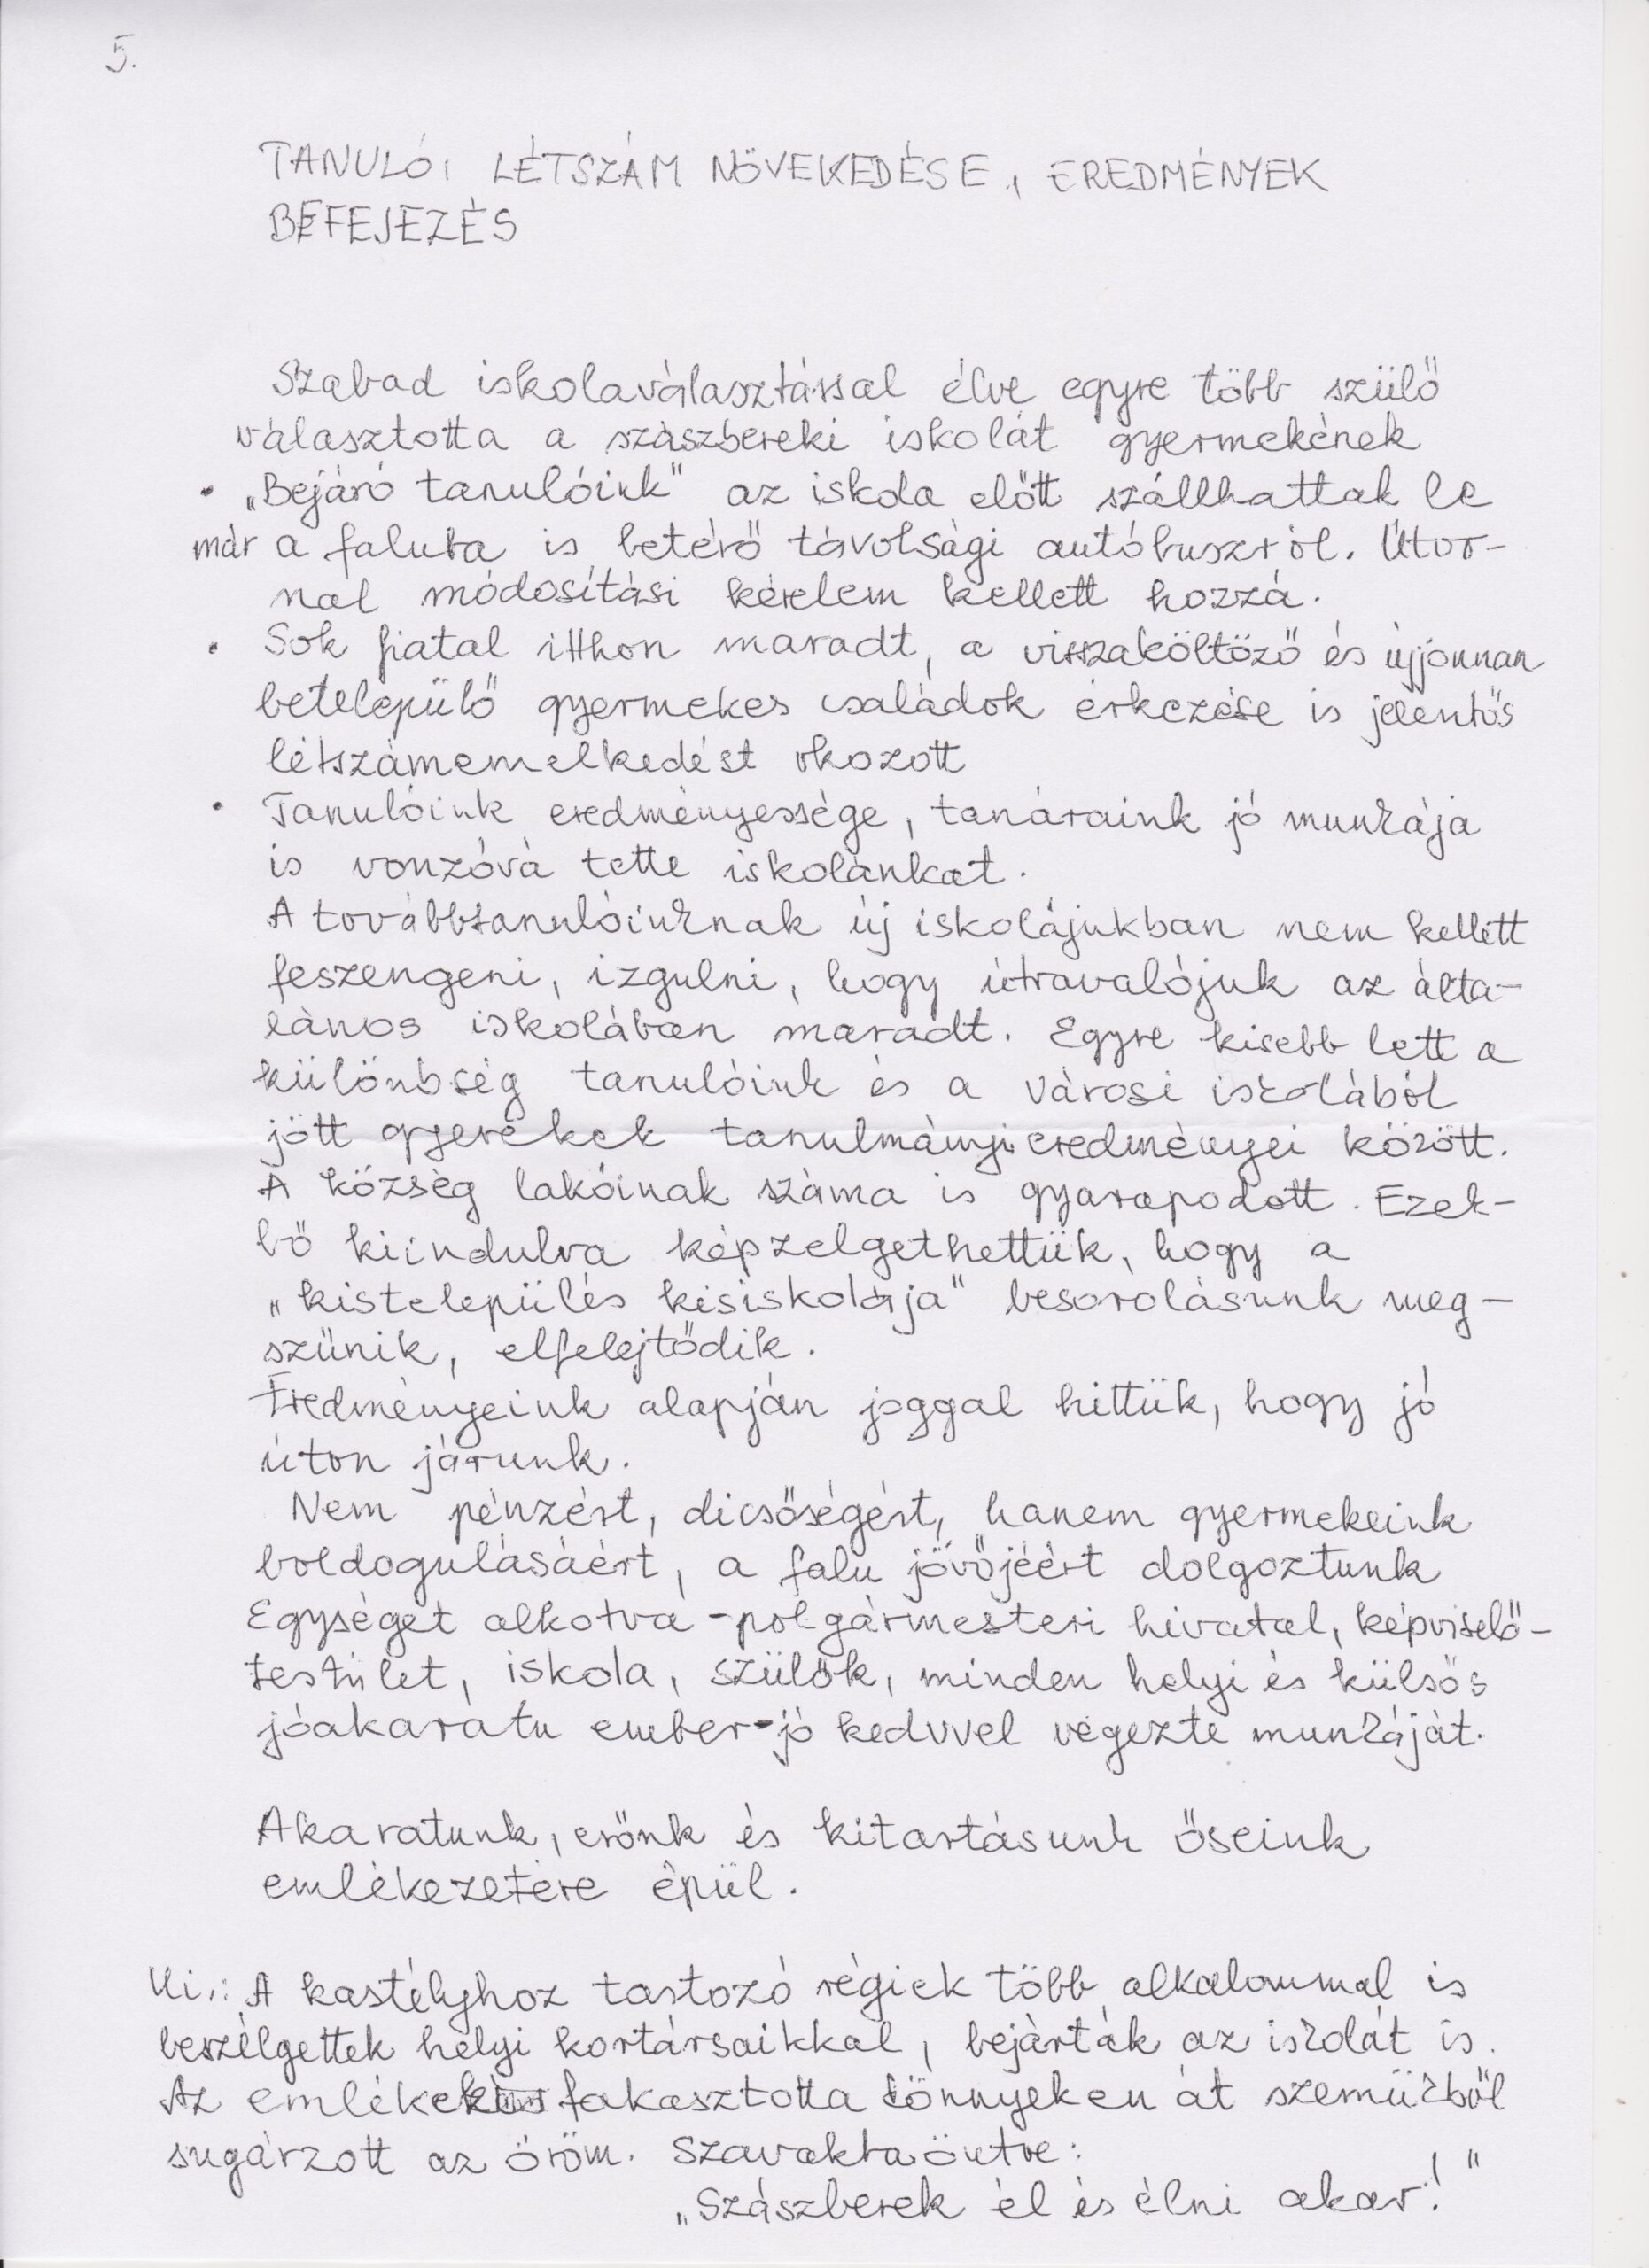 5.
TANULÓI LÉTSZÁM NÖVEKEDÉSE, EREDMÉNYEK
BEFEJEZÉS
Szabad iskolaválasztással élve egyre több szülő
választotta a szászbereki iskolát gyermekének
• „Bejáró tanulóink" az iskola előtt szállhattak le
már a faluba is betérő távolsági autóbuszról. Útvo-
nal módosítási kérelem kellett hozzá.
• Sok fiatal itthon maradt, a visszaköltöző és újonnan
betelepülő gyermekes családok érkezése is jelentős
létszámemelkedést okozott
• Tanulóink eredményessége, tanáraink jó munkája
is vonzóvá tette iskolánkat.
A továbbtanulóinknak új iskolájukban nem kellett
feszengeni, izgulni, hogy útravalójuk az álta-
lános iskolában maradt. Egyre kisebb lett a
különbség tanulóink és a városi iskolából
jött gyerekek tanulmányi eredményei között.
A község lakóinak száma is gyarapodott. Ezek-
bő kiindulva képzelgethettük, hogy a
„kistelepülés kisiskolája" besorolásunk meg-
szűnik, elfelejtődik.
Eredményeink alapján joggal hittük, hogy jó
úton járunk.
Nem pénzért, dicsőségért, hanem gyermekeink
boldogulásáért, a falu jövőjéért dolgoztunk
Egységet alkotva - polgármesteri hivatal, képviselő-
testület, iskola, szülők, minden helyi és külsős
jóakaratu ember - jó kedvvel végezte munkáját.
Akaratunk, erőnk és kitartásunk őseink
emlékezetére épül.
Ui.: A kastélyhoz tartozó régiek több alkalommal is
beszélgettek helyi kortársaikkal, bejárták az iskolát is.
Az emlékek fakasztotta könnyeken át szemükből
sugárzott az öröm. Szavakba öntve:
„Szászberek él és élni akar!"